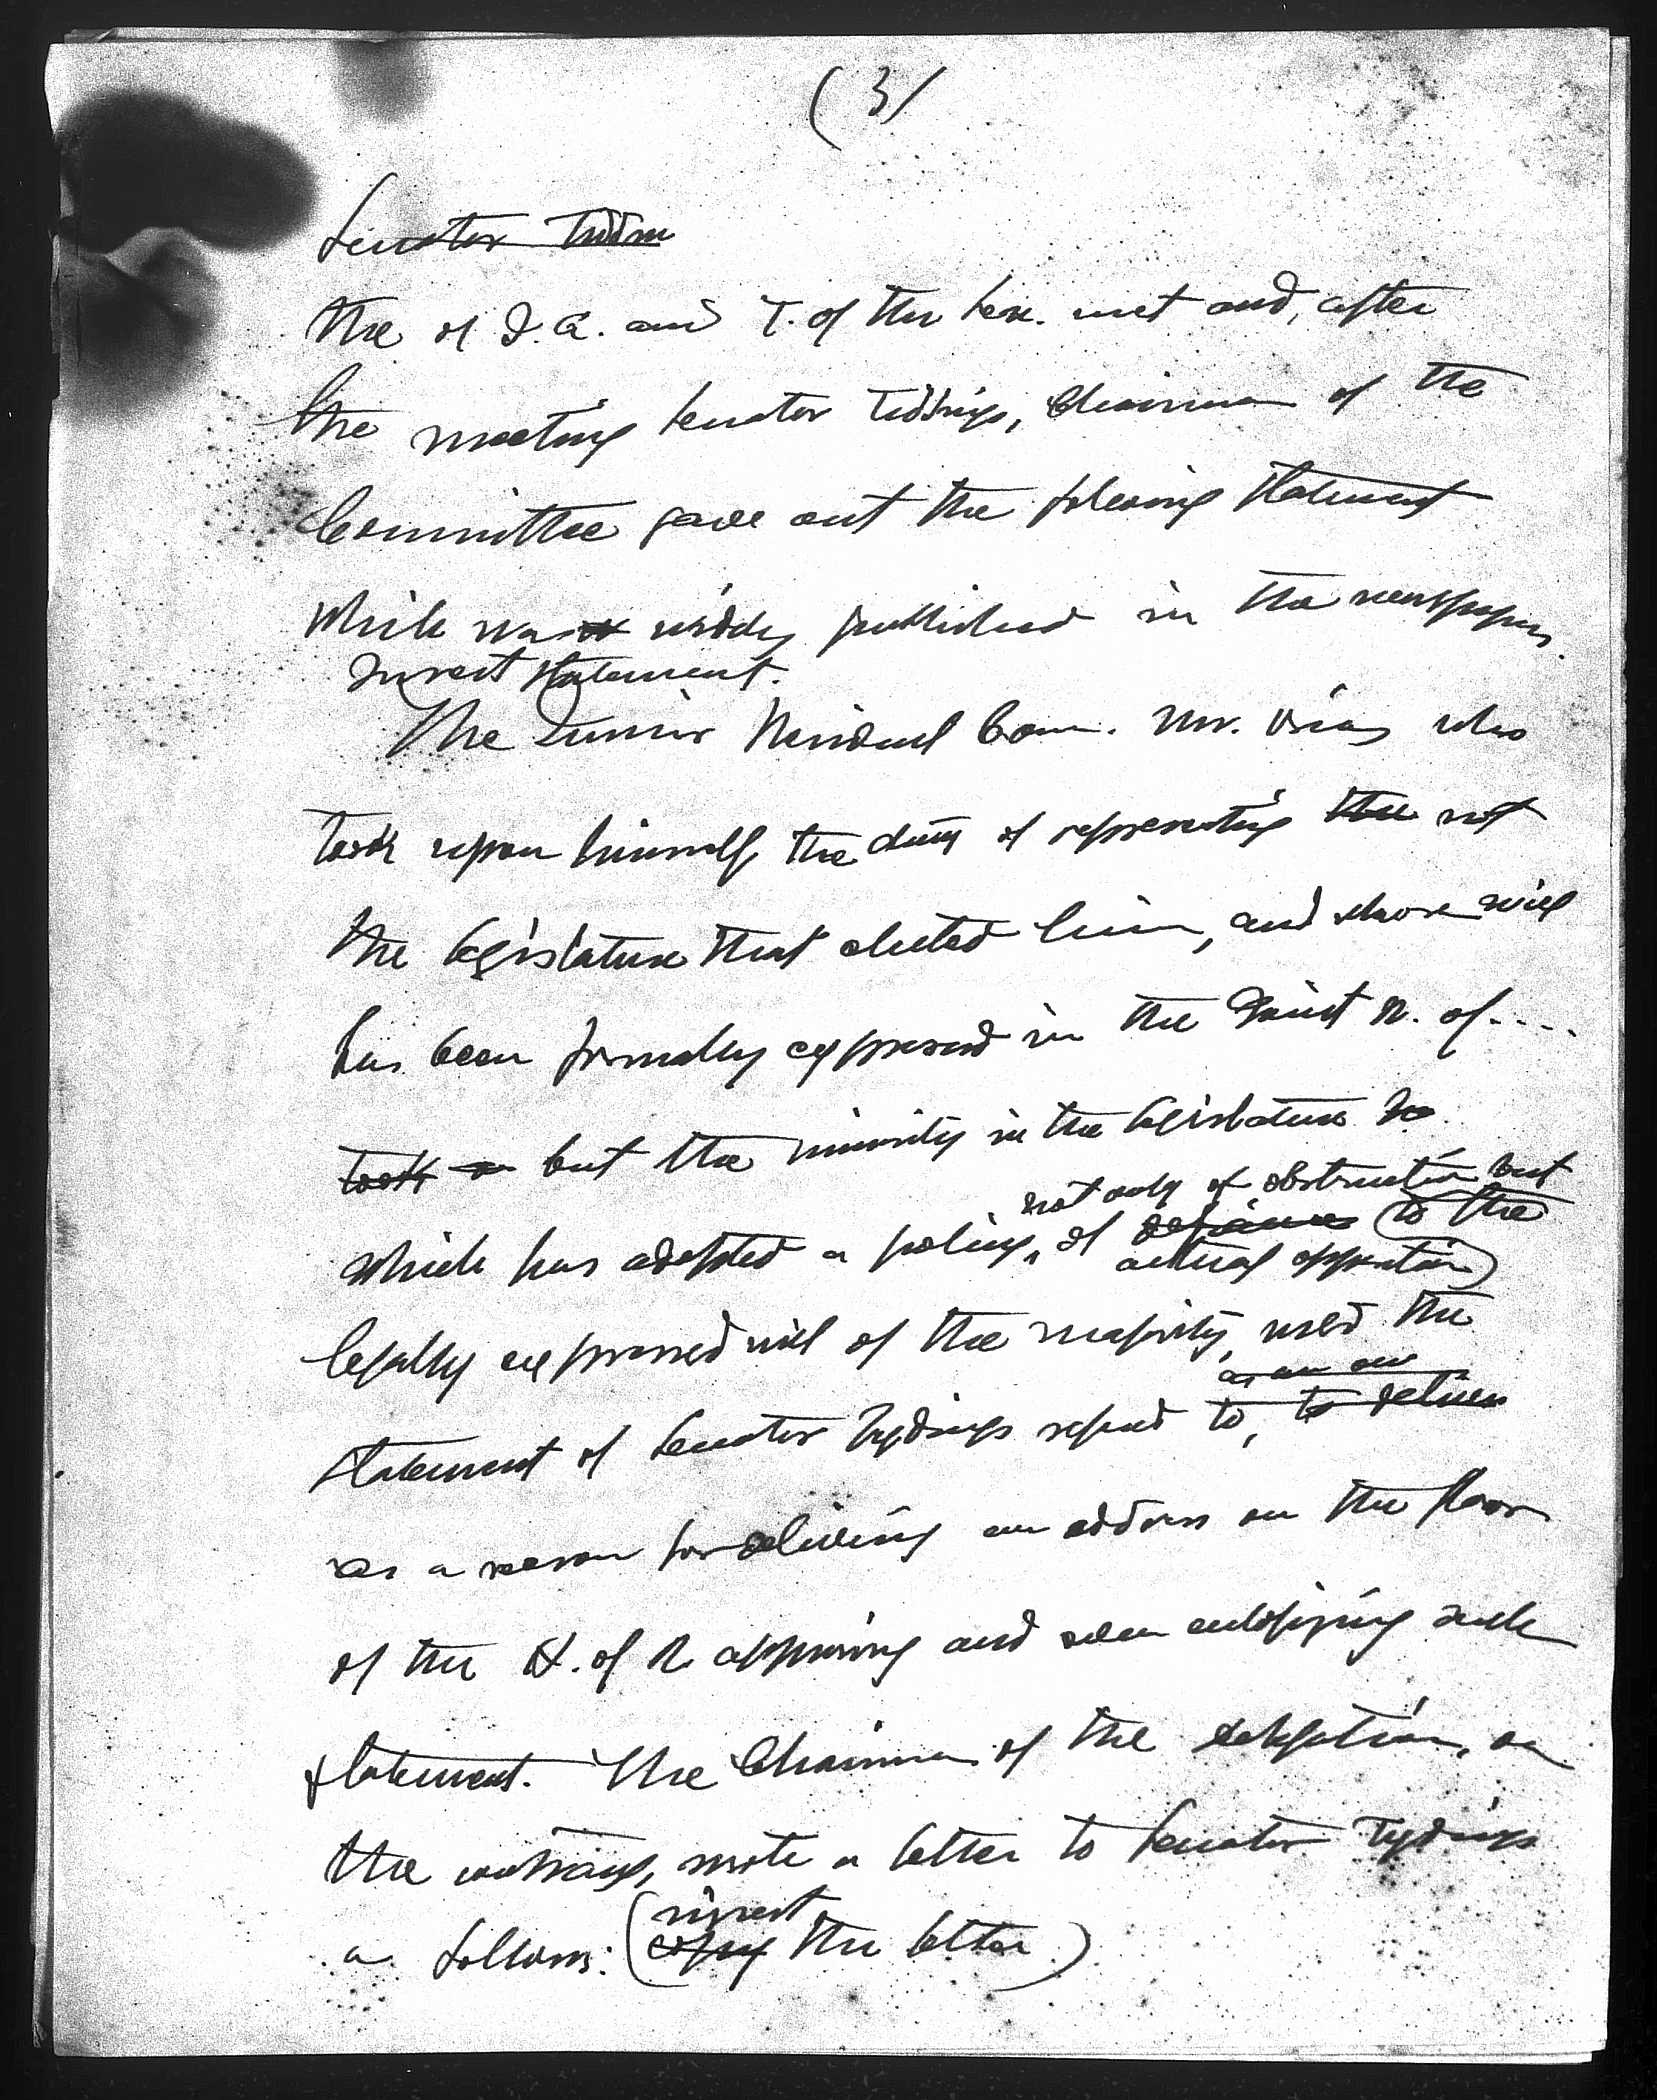 (3)
Senator Tidin
The of I. A. and T. of the Sen. met and, after
the meeting Senator Tiddings, Chairman of the
Committee gave out the following statement
which was widely published in the newspapers.
Insert statement.
The Junior Resident Com. Mr. Osias who
took upon himself the duty of representing the not
the legislature that elected him, and whose will
has been formally expressed in the Joint R. of....
took but the minority in the legislature
not only of obstruction but
which has adopted a policy of defiance to the
actual opposition
legally expressed will of the majority, used the
as an
statement of Senator Tydings refered to, to deliver
as a reason for delivering an address on the floor
of the H. of R. approving and even eulogizing such
statement. The Chairman of the delegation, on
the contrary, wrote a letter to Senator Tydings
a follows: (insert
copy the letter)